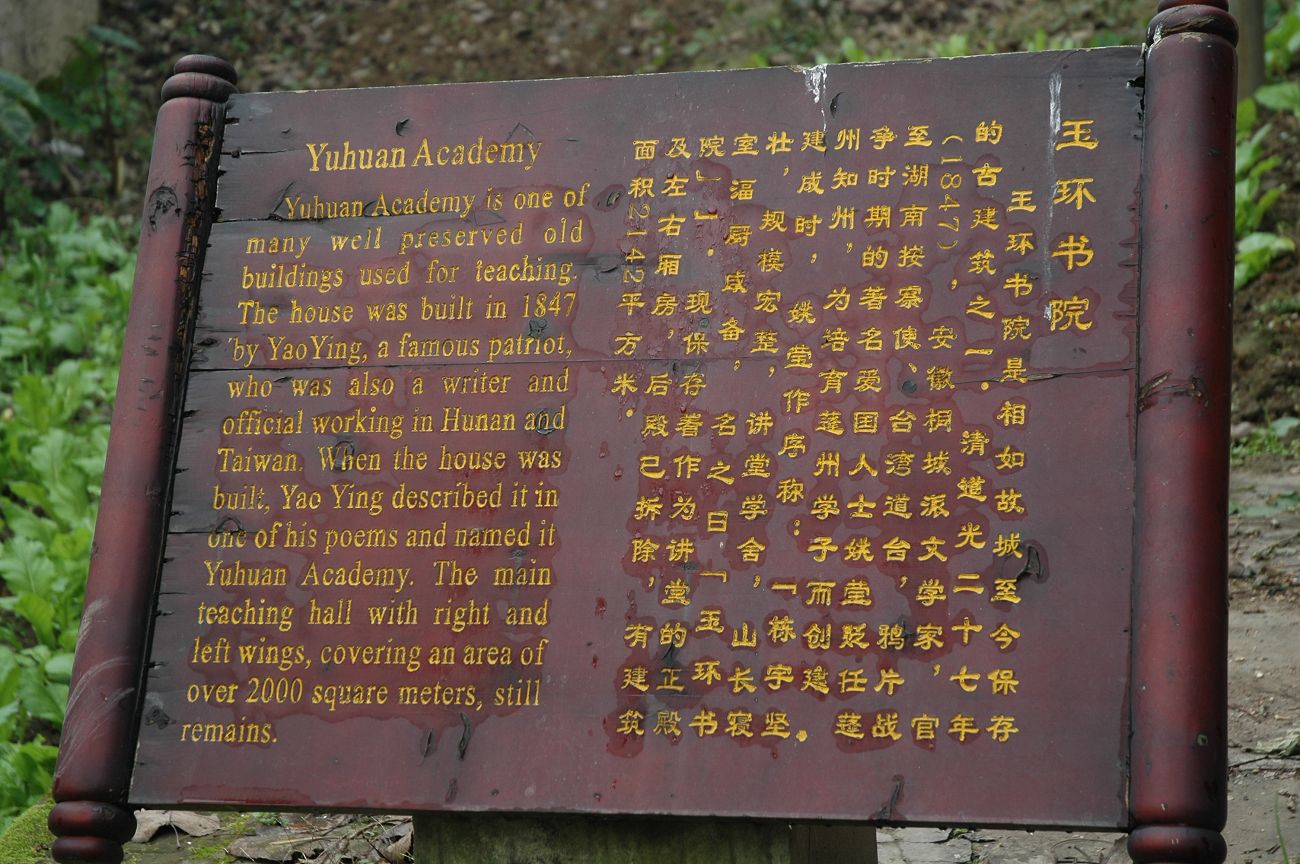 Yuhuan Academy
Yuhuan Academy is one of
many well preserved old
buildings used for teaching.
The house was built in 1847
by Yao Ying, a famous patriot,
who was also a writer and
official working in Hunan and
Taiwan. When the house was
built, Yao Ying described it in
one of his poems and named it
Yuhuan Academy. The main
teaching hall with right and
left wings, covering an area of
over 2000 square meters, still
remains.
玉环书院
玉环书院是相如故城至今保存
的古建筑之一。清道光二十七年
(1847),安徽桐城派文学家,官
至湖南按察使、台湾道台,鸦片战
争时期的著名爱国人士姚莹贬任蓬
州知州,为培育蓬州学子而创建。
建成时,姚莹作序称:「栋宇坚
壮,规模宏整,讲堂学舍,山长寝
室湢厨咸备,名之曰「玉环书
院」」。现保存着作为讲堂的正殿
及左右厢房,后殿已拆除,有建筑
面积2142平方米。